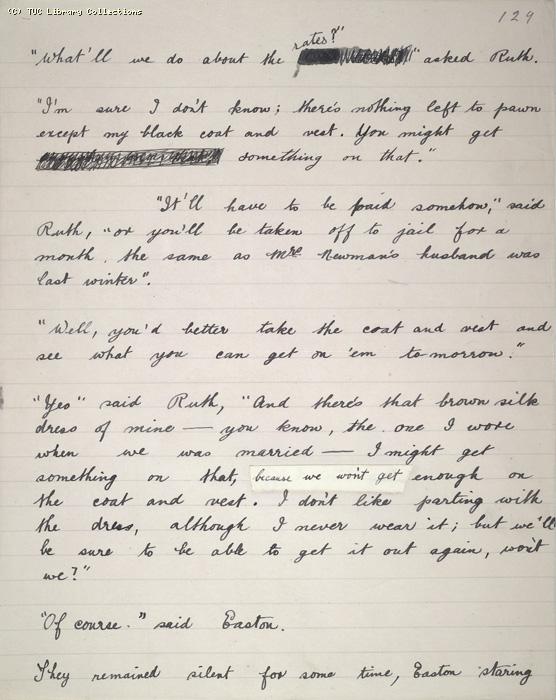 (C) TUC Library Collections
129
rates?"
"What'll we do about the " asked Ruth.
"I'm sure I don't know; there's nothing left to pawn
except my black coat and vest. You might get
something on that."
"It'll have to be paid somehow," said
Ruth, "or you'll be taken off to jail for a
month, the same as Mrs Newman's husband was
last winter".
"Well, you'd better take the coat and vest and
see what you can get on 'em to-morrow."
"Yes" said Ruth, "And there's that brown silk
dress of mine — you know, the one I wore
when we was married — I might get
something on that, because we won't get enough on
the coat and vest. I don't like parting with
the dress, although I never wear it; but we'll
be sure to be able to get it out again, won't
we?"
"Of course." said Easton.
They remained silent for some time, Easton staring